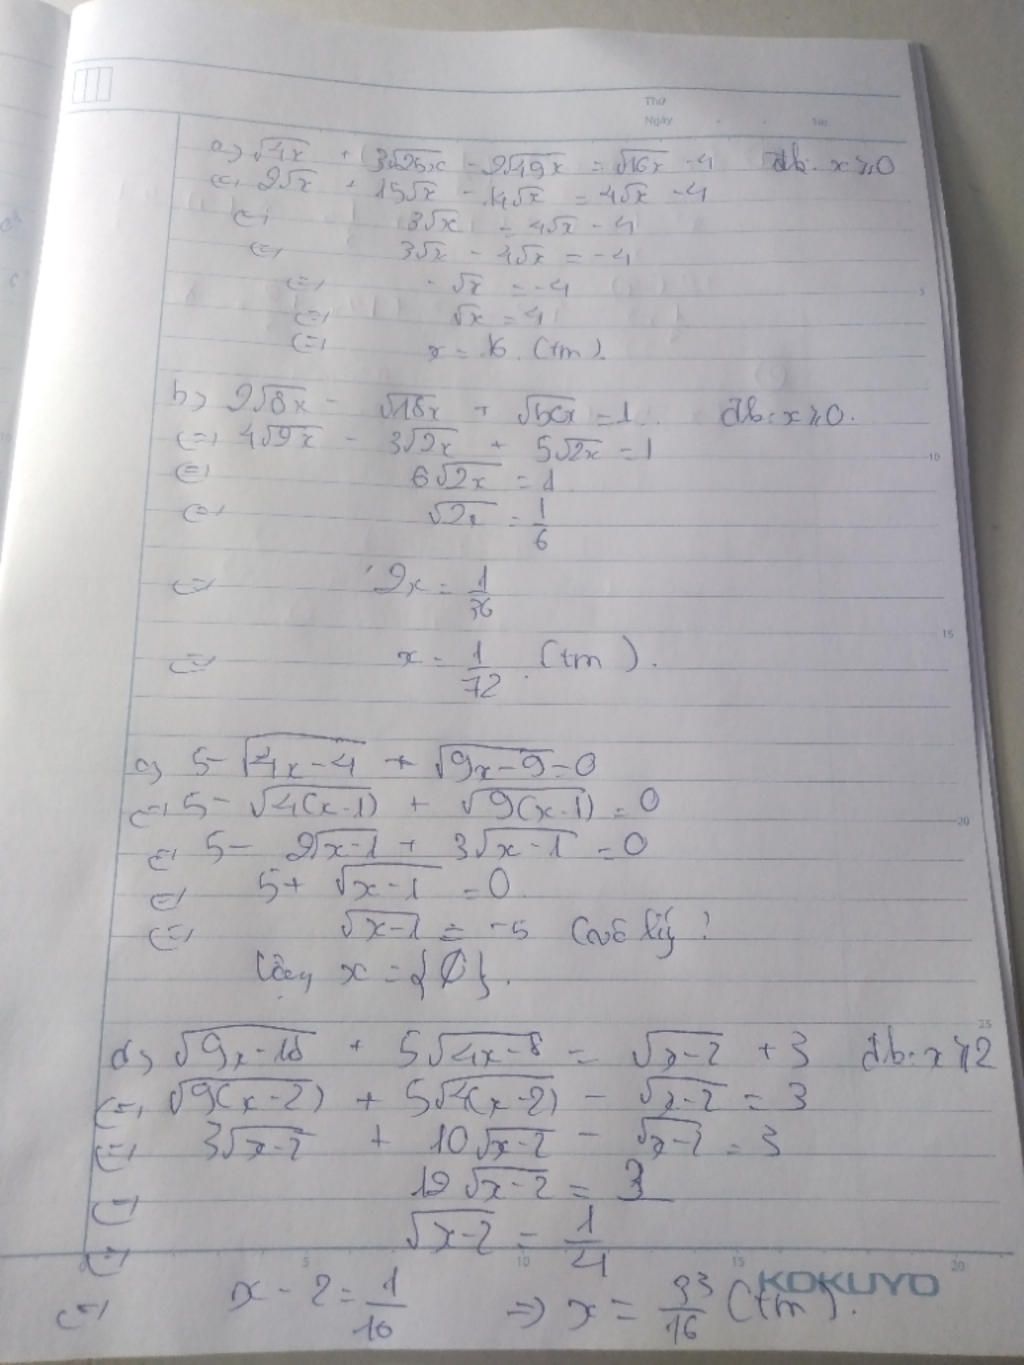 Thứ
Ngày
No.
a) √4x + 3√25x - 2√49x = √16x - 4 đk: x ⩾ 0
<=> 2√x + 15√x - 14√x = 4√x - 4
<=> 3√x = 4√x - 4
<=> 3√x - 4√x = -4
<=> -√x = -4
<=> √x = 4
<=> x = 16 (tm).
5
b) 2√8x - √18x + √50x = 1. đk: x ⩾ 0.
<=> 4√2x - 3√2x + 5√2x = 1
10
<=> 6√2x = 1
<=> √2x = 1/6
<=> 2x = 1/36
15
<=> x = 1/72 (tm).
c) 5 - √4x-4 + √9x-9 = 0
<=> 5 - √4(x-1) + √9(x-1) = 0
20
<=> 5 - 2√x-1 + 3√x-1 = 0
<=> 5 + √x-1 = 0
<=> √x-1 = -5 (vô lý)
Vậy x = {∅}.
25
d) √9x-18 + 5√4x-8 = √x-2 + 3 đk: x ⩾ 2
<=> √9(x-2) + 5√4(x-2) - √x-2 = 3
<=> 3√x-2 + 10√x-2 - √x-2 = 3
<=> 12√x-2 = 3
<=> √x-2 = 1/4
5 10 15 20
KOKUYO
<=> x - 2 = 1/16 => x = 33/16 (tm).